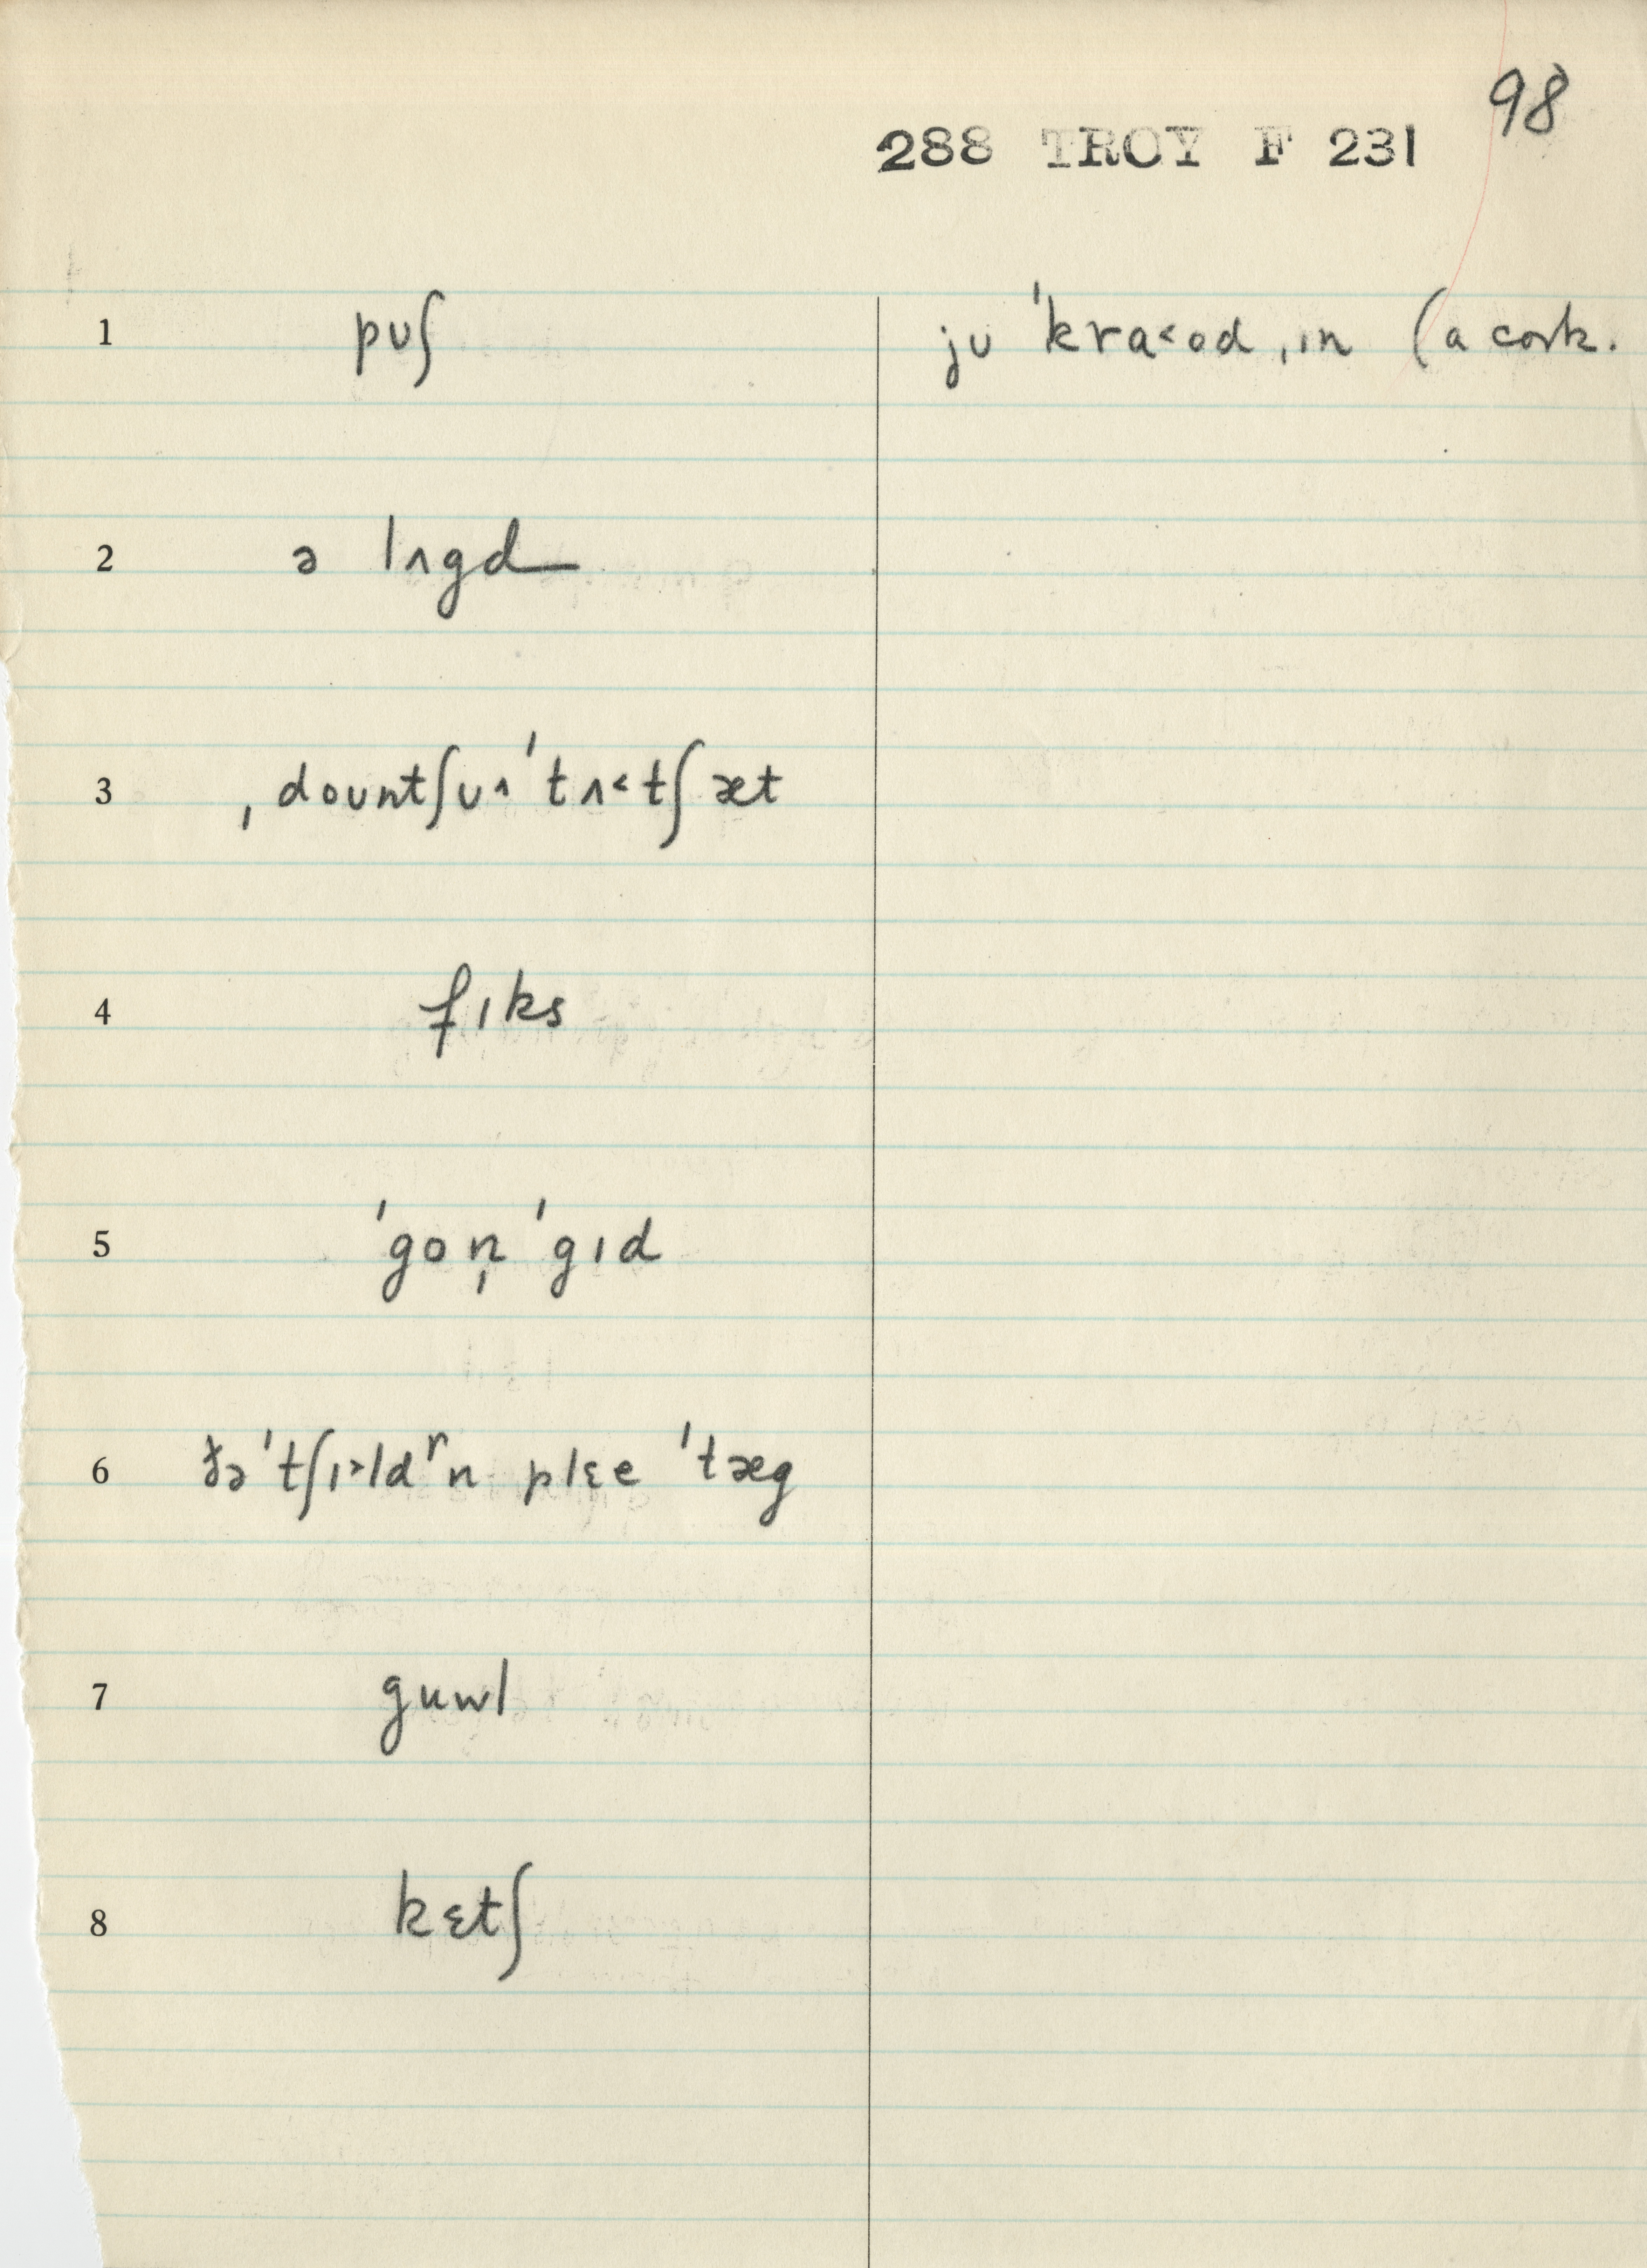 98
288 TROY F 231
1 pʊʃ ju ˈkra˂ɒd ˌɪn (a cork.
2 ə lʌgd
3 ˌdoʊntʃʊ˄ ˈtʌ˂tʃ æt
4 fɪks
5 ˈgoṇ ˈgɪd
6 ðə ˈtʃɪ˃ldʳn plɛe ˈtæg
7 guwl
8 kɛtʃ